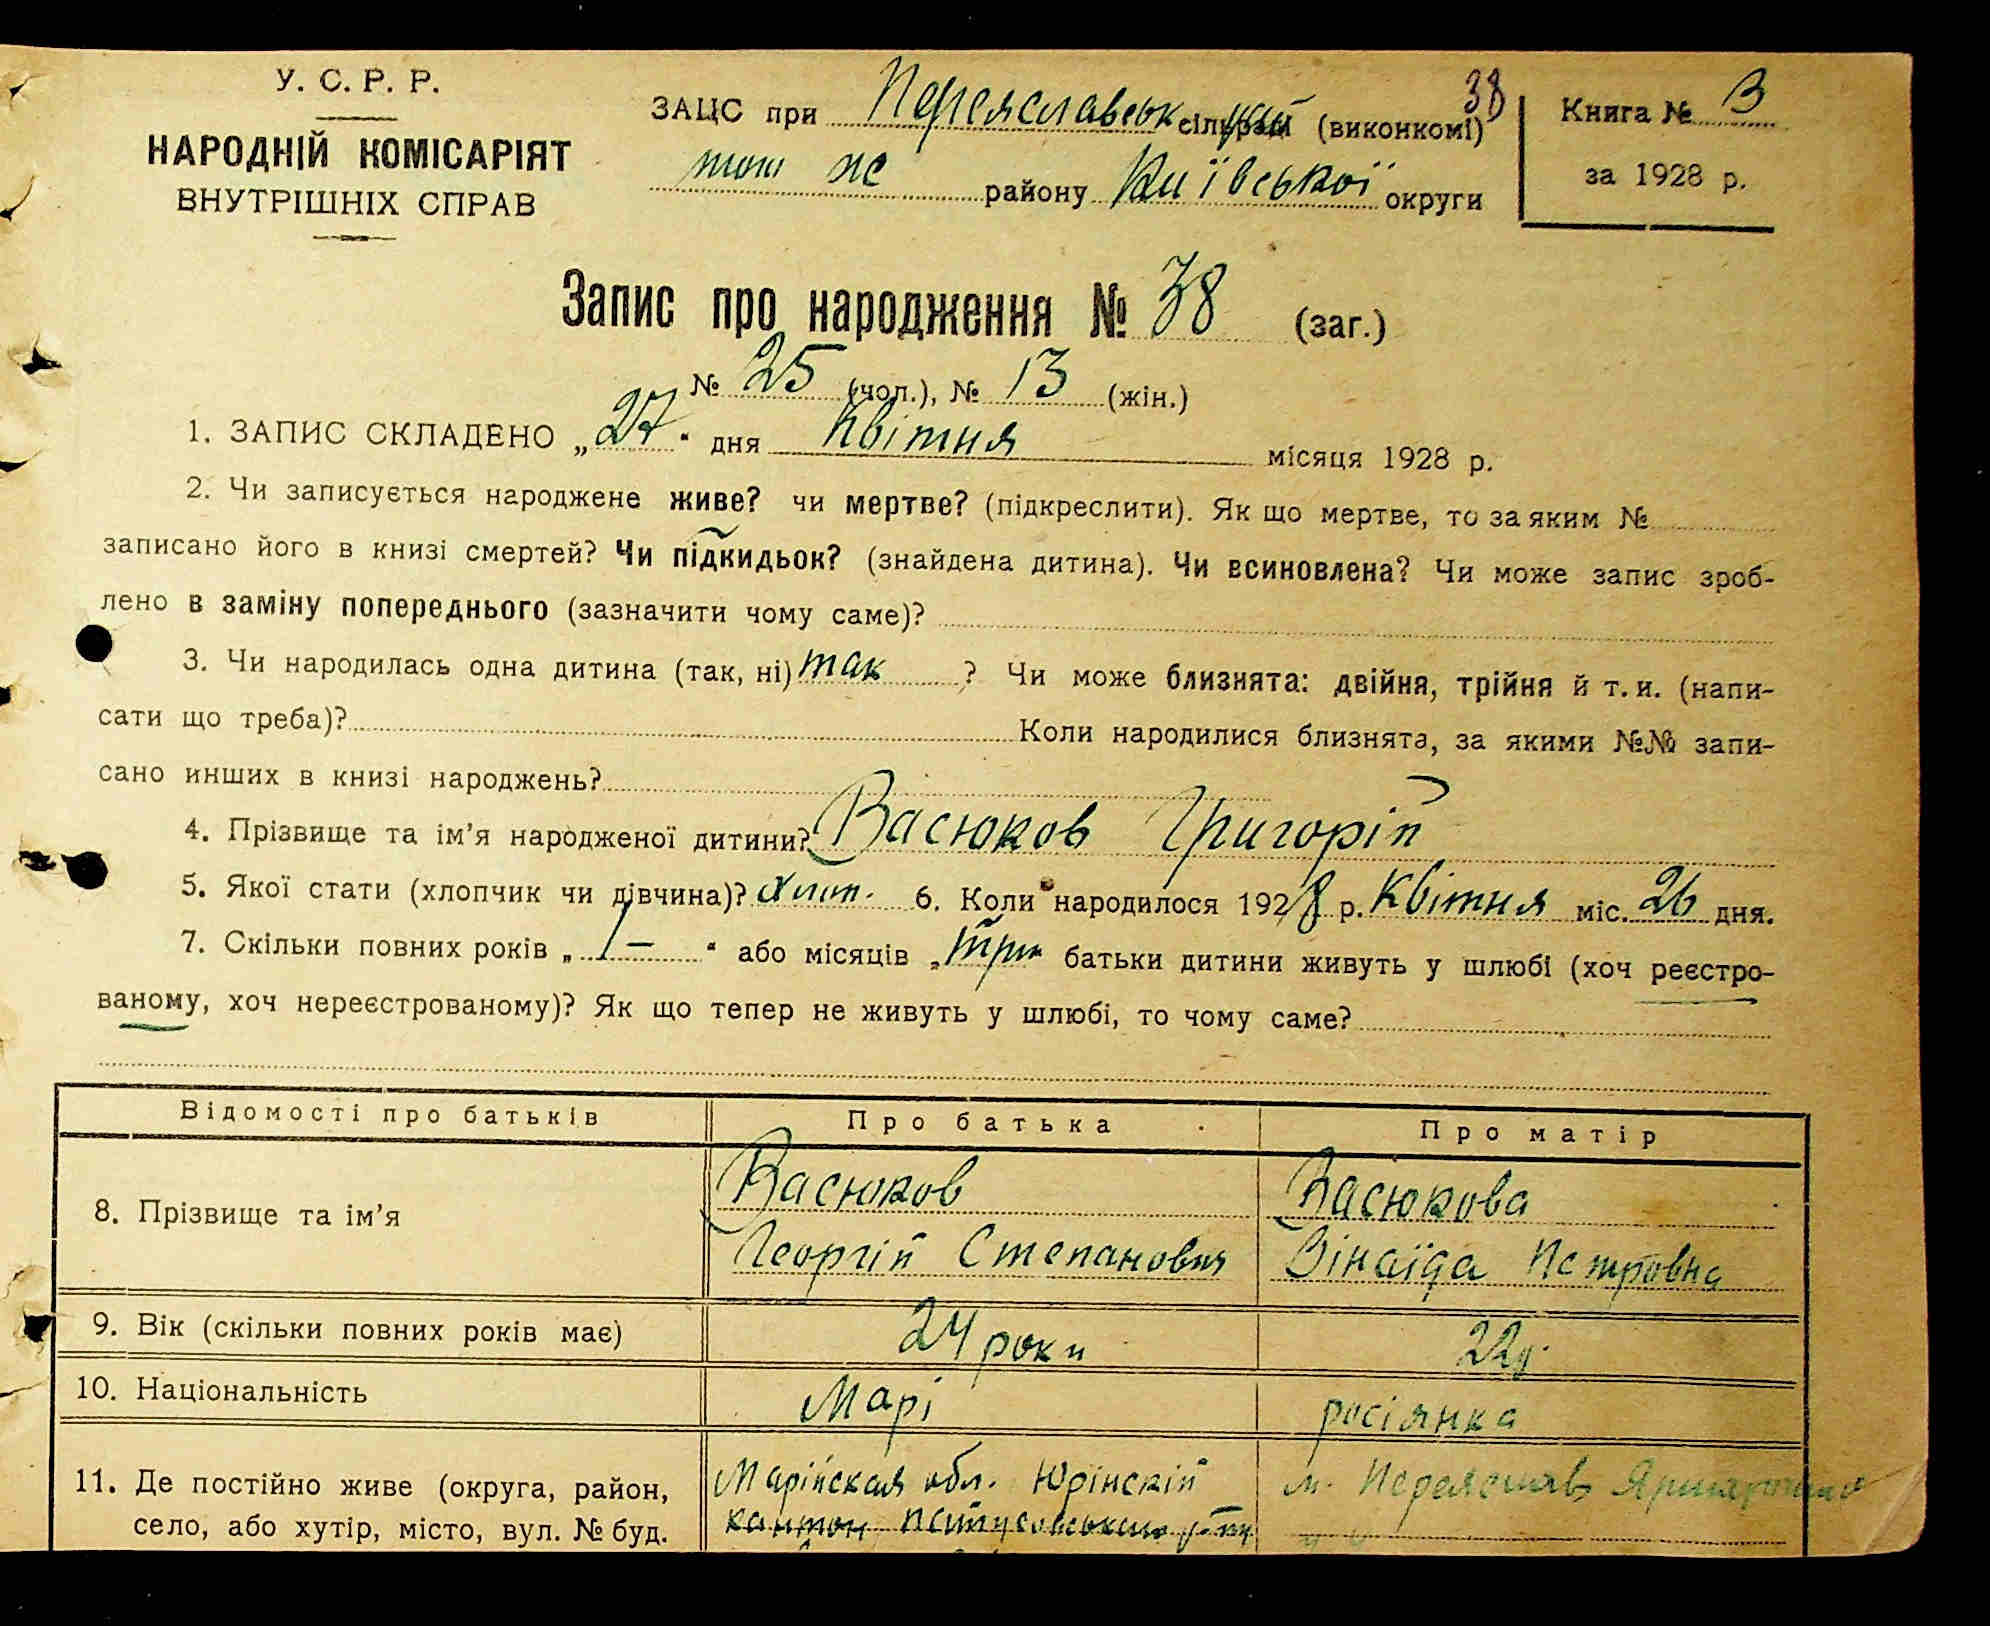 У. С. Р. Р.
НАРОДНІЙ КОМІСАРІЯТ
ВНУТРІШНІХ СПРАВ
38
ЗАЦС при Переяславськ сільраді (виконкомі)
тош же району Київської округи
Книга № 3
за 1928 р.
Запис про народження № 38 (заг.)
№ 25 (чол.), № 13 (жін.)
1. ЗАПИС СКЛАДЕНО „27“ дня Квітня місяця 1928 р.
2. Чи записується народжене живе? чи мертве? (підкреслити). Як що мертве, то за яким №
записано його в книзі смертей? Чи підкидьок? (знайдена дитина). Чи всиновлена? Чи може запис зроб-
лено в заміну попереднього (зазначити чому саме)?
3. Чи народилась одна дитина (так, ні) так ? Чи може близнята: двійня, трійня й т. и. (напи-
сати що треба)? Коли народилися близнята, за якими №№ запи-
сано инших в книзі народжень?
4. Прізвище та ім’я народженої дитини? Васюков Григорій
5. Якої стати (хлопчик чи дівчина)? хлоп. 6. Коли народилося 1928 р. Квітня міс. 26 дня.
7. Скільки повних років „ — “ або місяців „три“ батьки дитини живуть у шлюбі (хоч реєстро-
ваному, хоч нереєстрованому)? Як що тепер не живуть у шлюбі, то чому саме?
Відомості про батьків Про батька Про матір
8. Прізвище та ім’я
Васюков
Георгій Степанович
Васюкова
Зінаїда Петровна
9. Вік (скільки повних років має) 24 роки 22 р.
10. Національність Марі росіянка
11. Де постійно живе (округа, район,
село, або хутір, місто, вул. № буд.
Марійская обл. Юрінскій
кантон
м. Переяслав